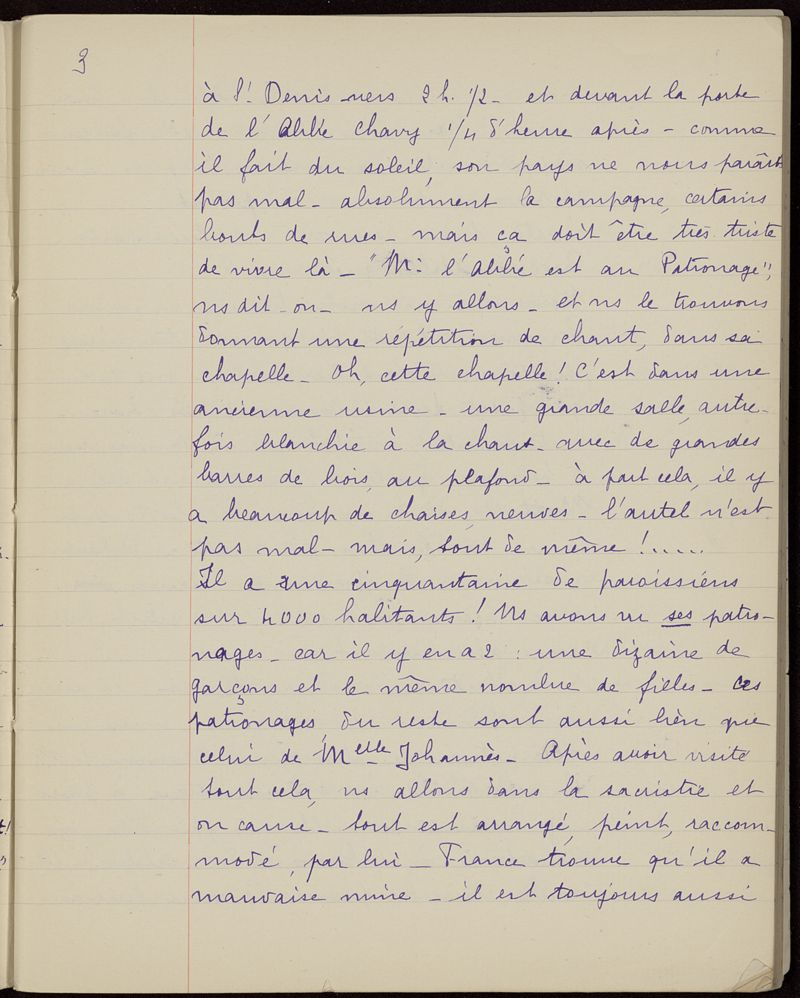 3
à St Denis vers 2 h. 1/2 - et devant la porte
de l'Abbé Chavy 1/4 d'heure après - comme
il fait du soleil, son pays ne nous paraît
pas mal - absolument la campagne, certains
bouts de rues - mais ça doit être très triste
de vivre là - "Mr l'Abbé est au Patronage",
ns dit-on - ns y allons - et ns le trouvons
donnant une répétition de chant, dans sa
chapelle - Oh, cette chapelle ! C'est dans une
ancienne usine - une grande salle, autre-
fois blanchie à la chaux - avec de grandes
barres de bois, au plafond - à part cela, il y
a beaucoup de chaises neuves - l'autel n'est
pas mal - mais, tout de même !.....
Il a une cinquantaine de paroissiens
sur 4000 habitants ! Ns avons vu ses patro-
nages - car il y en a 2 : une dizaine de
garçons et le même nombre de filles - ces
patronages, du reste sont aussi bien que
celui de Melle Johannès - Après avoir visité
tout cela, ns allons dans la sacristie et
on cause - tout est arrangé, peint, raccom-
modé, par lui - France trouve qu'il a
mauvaise mine - il est toujours aussi